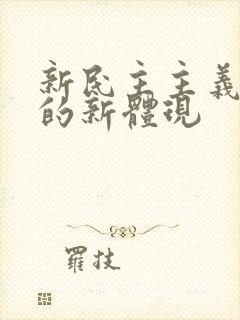 新民主主義
的新體現
羅技